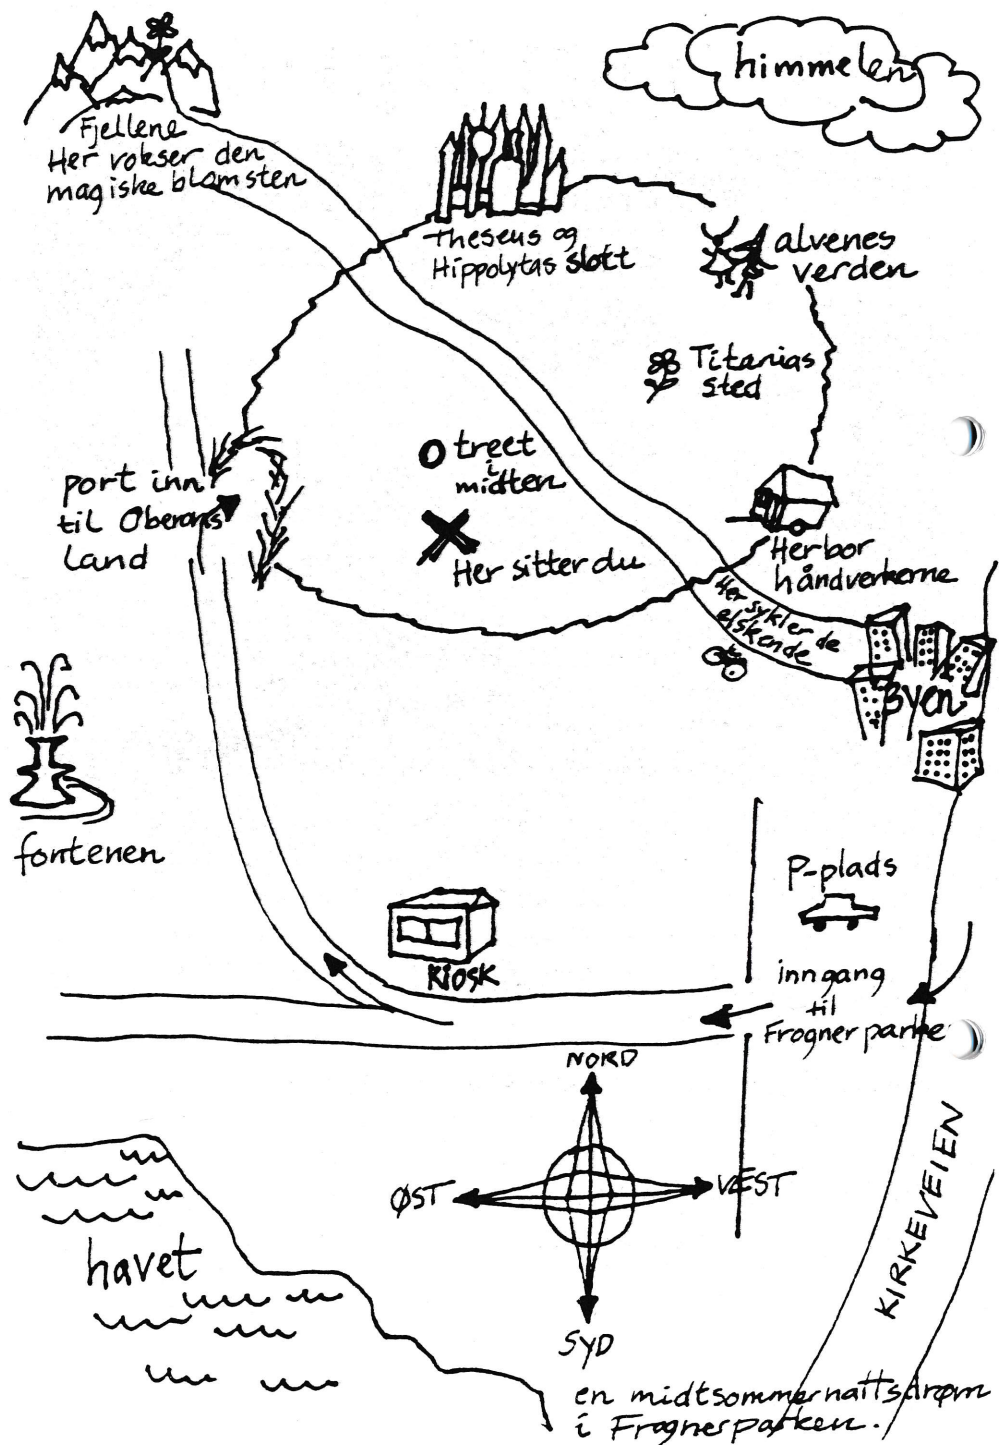 himmelen
Fjellene
Her vokser den
magiske blomsten
Theseus og
Hippolytas slott
alvenes
verden
Titanias
sted
treet
i
midten
port inn
til Oberons
Land
Her sitter du
Her bor
håndverkerne
Her sykler de
elskende
Byen
fontenen
P-plads
KIOSK
inngang
til
Frogner parke
NORD
ØST
VÆST
SYD
KIRKEVEIEN
havet
en midtsommernattsdrøm
i Frognerparken.